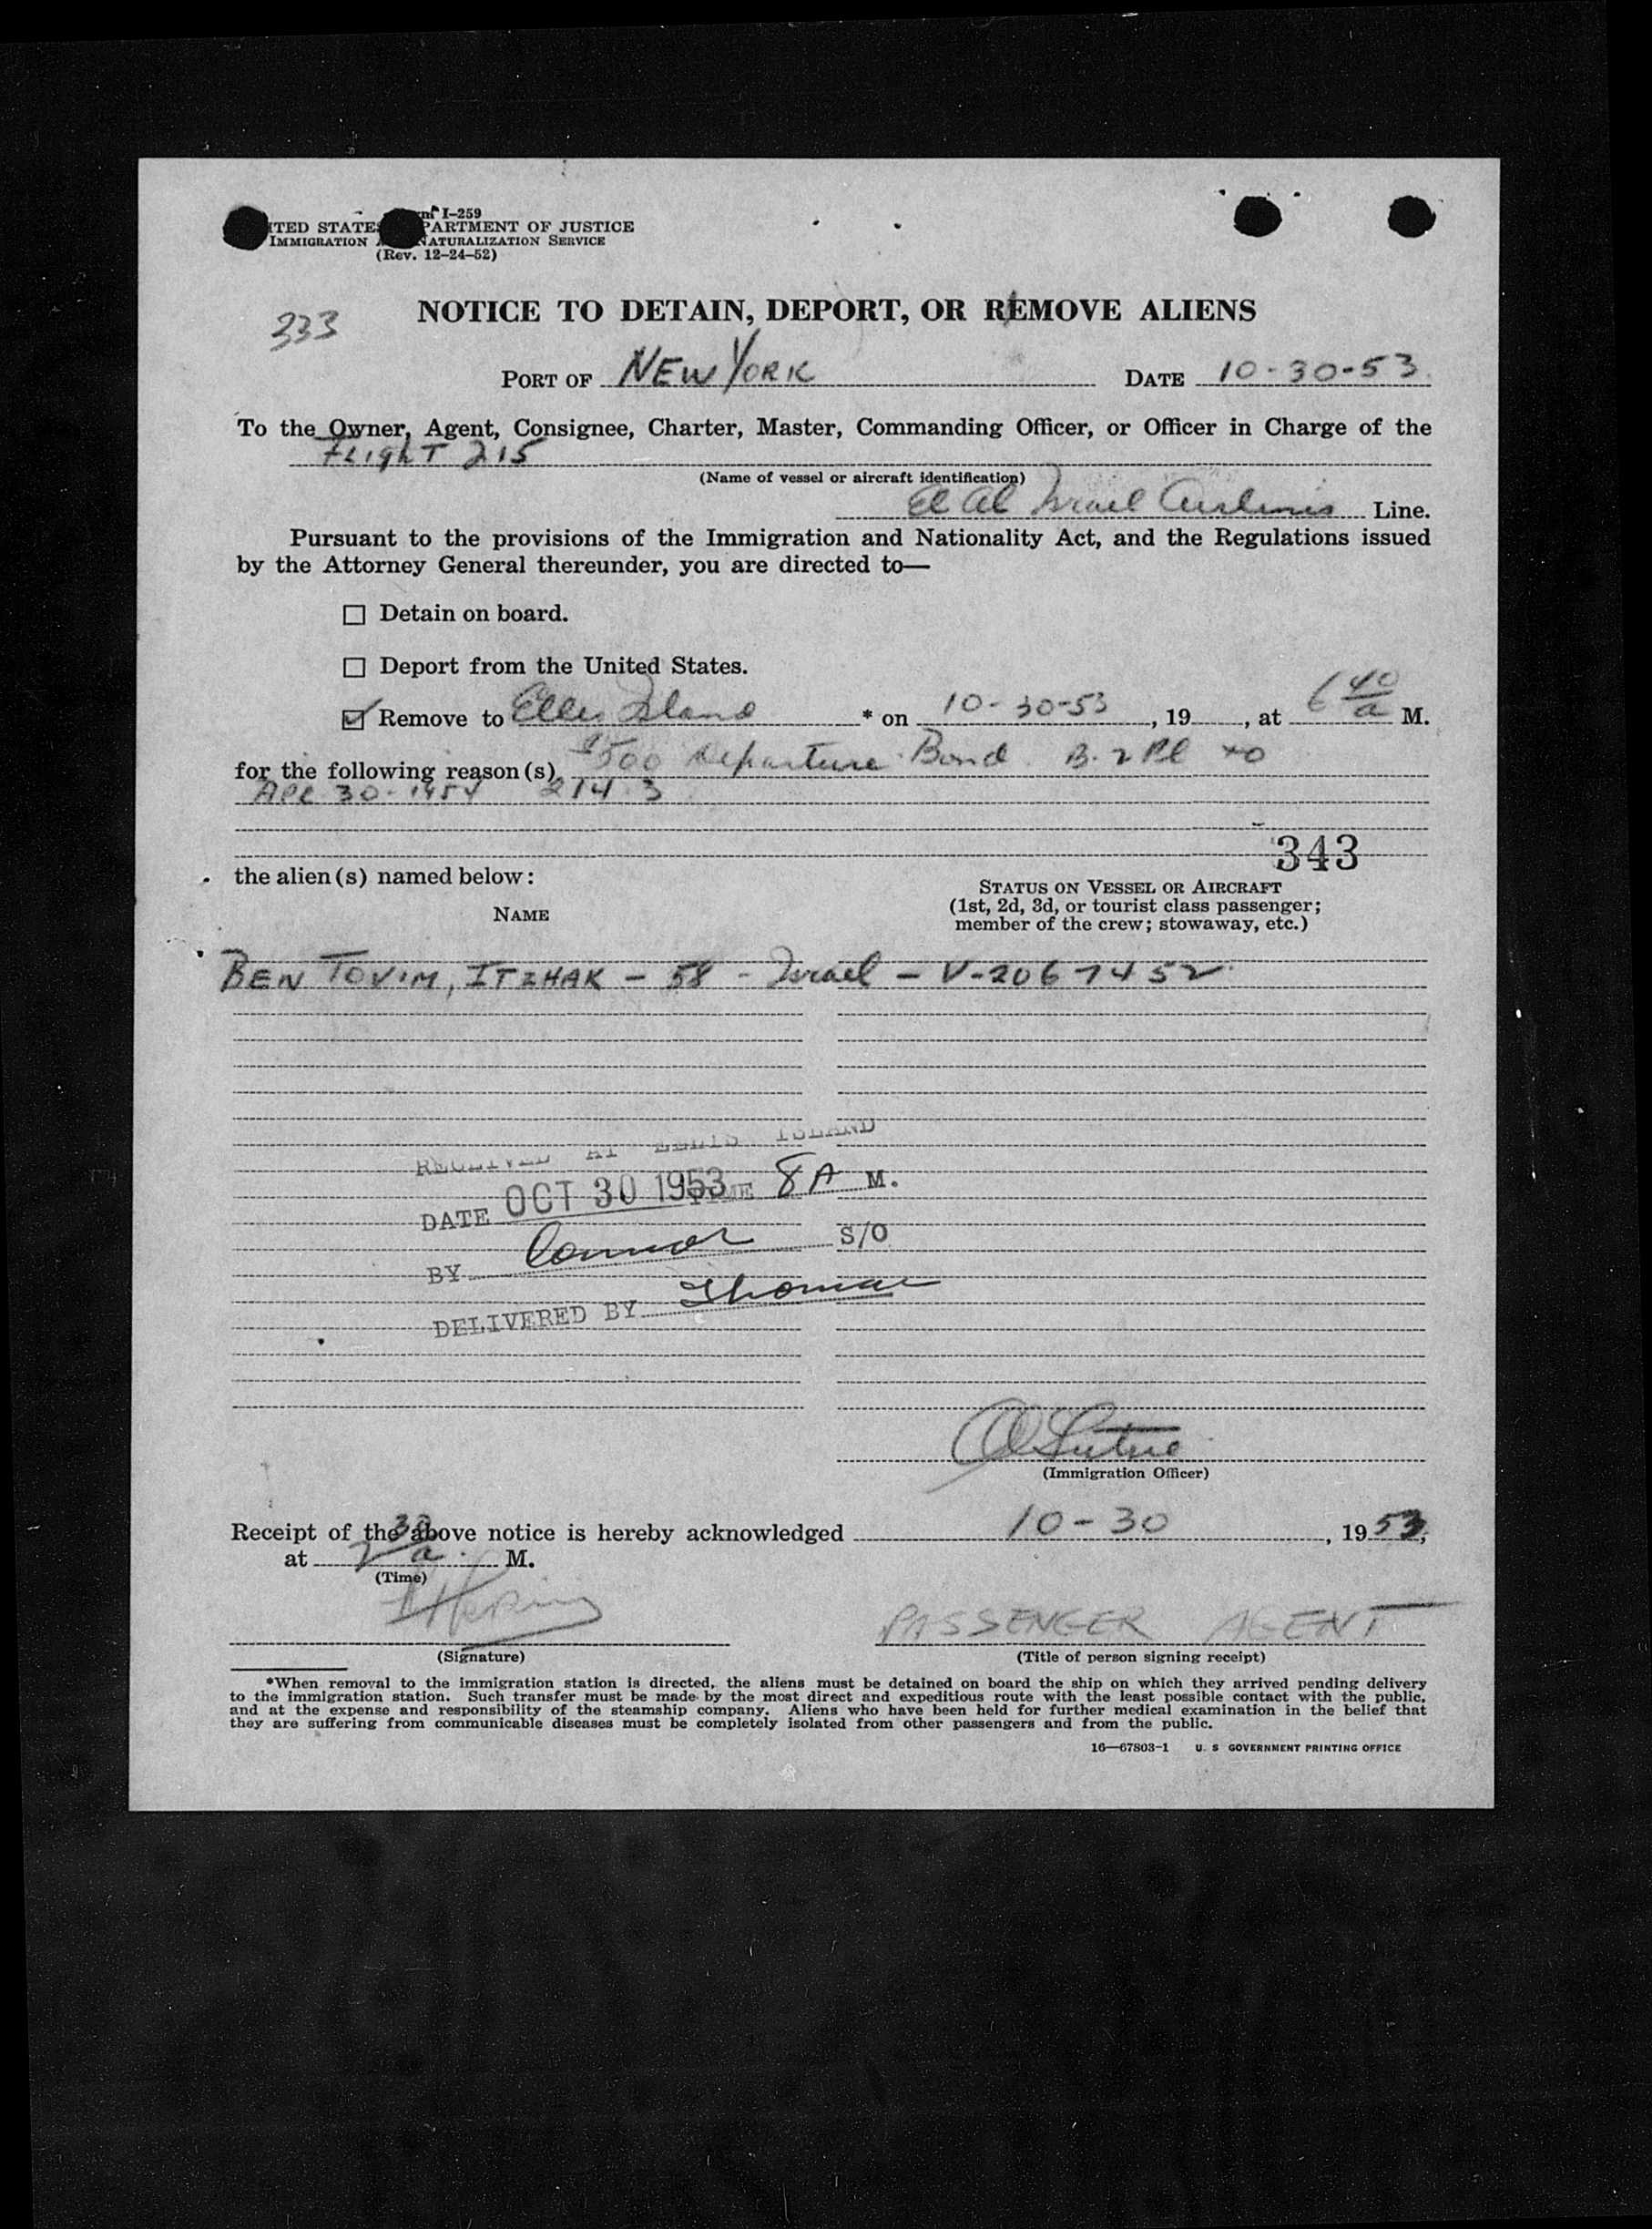 m I-259
ITED STATES PARTMENT OF JUSTICE
IMMIGRATION A NATURALIZATION SERVICE
(Rev. 12-24-52)
333
NOTICE TO DETAIN, DEPORT, OR REMOVE ALIENS
PORT OF NEW YORK DATE 10-30-53
To the Owner, Agent, Consignee, Charter, Master, Commanding Officer, or Officer in Charge of the
FLIGHT 215
(Name of vessel or aircraft identification)
El Al Israel Airlines Line.
Pursuant to the provisions of the Immigration and Nationality Act, and the Regulations issued
by the Attorney General thereunder, you are directed to—
☐ Detain on board.
☐ Deport from the United States.
☑ Remove to Ellis Island * on 10-30-53, 19, at 6 40 a M.
for the following reason(s) $500 Departure Bond B-2 to
APR 30-1954 214.3
343
the alien(s) named below:
STATUS ON VESSEL OR AIRCRAFT
NAME (1st, 2d, 3d, or tourist class passenger;
member of the crew; stowaway, etc.)
BEN TOVIM, ITZHAK - 58 - Israel - V-2067452
RECEIVED AT ELLIS ISLAND
DATE OCT 30 1953 TIME 8 A M.
BY Connor S/O
DELIVERED BY Thomas
(Immigration Officer)
Receipt of the above notice is hereby acknowledged 10-30, 1953,
at 2 30 a M.
(Time)
PASSENGER AGENT
(Signature) (Title of person signing receipt)
*When removal to the immigration station is directed, the aliens must be detained on board the ship on which they arrived pending delivery
to the immigration station. Such transfer must be made by the most direct and expeditious route with the least possible contact with the public,
and at the expense and responsibility of the steamship company. Aliens who have been held for further medical examination in the belief that
they are suffering from communicable diseases must be completely isolated from other passengers and from the public.
16—67803-1 U. S GOVERNMENT PRINTING OFFICE